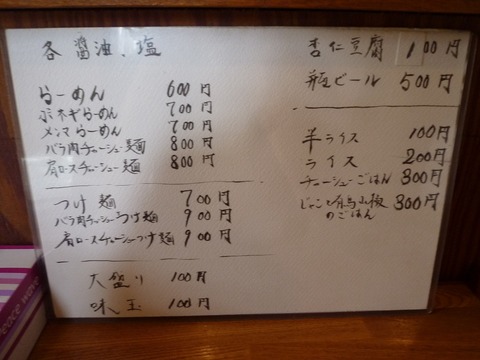 各 醤油、塩
らーめん 600円
ネギらーめん 700円
メンマらーめん 700円
バラ肉チャーシュー麺 800円
肩ロースチャーシュー麺 800円
つけ麺 700円
バラ肉チャーシューつけ麺 900円
肩ロースチャーシューつけ麺 900円
大盛り 100円
味玉 100円
杏仁豆腐 100円
瓶ビール 500円
半ライス 100円
ライス 200円
チャーシューごはん 300円
じゃこと 300円
のごはん